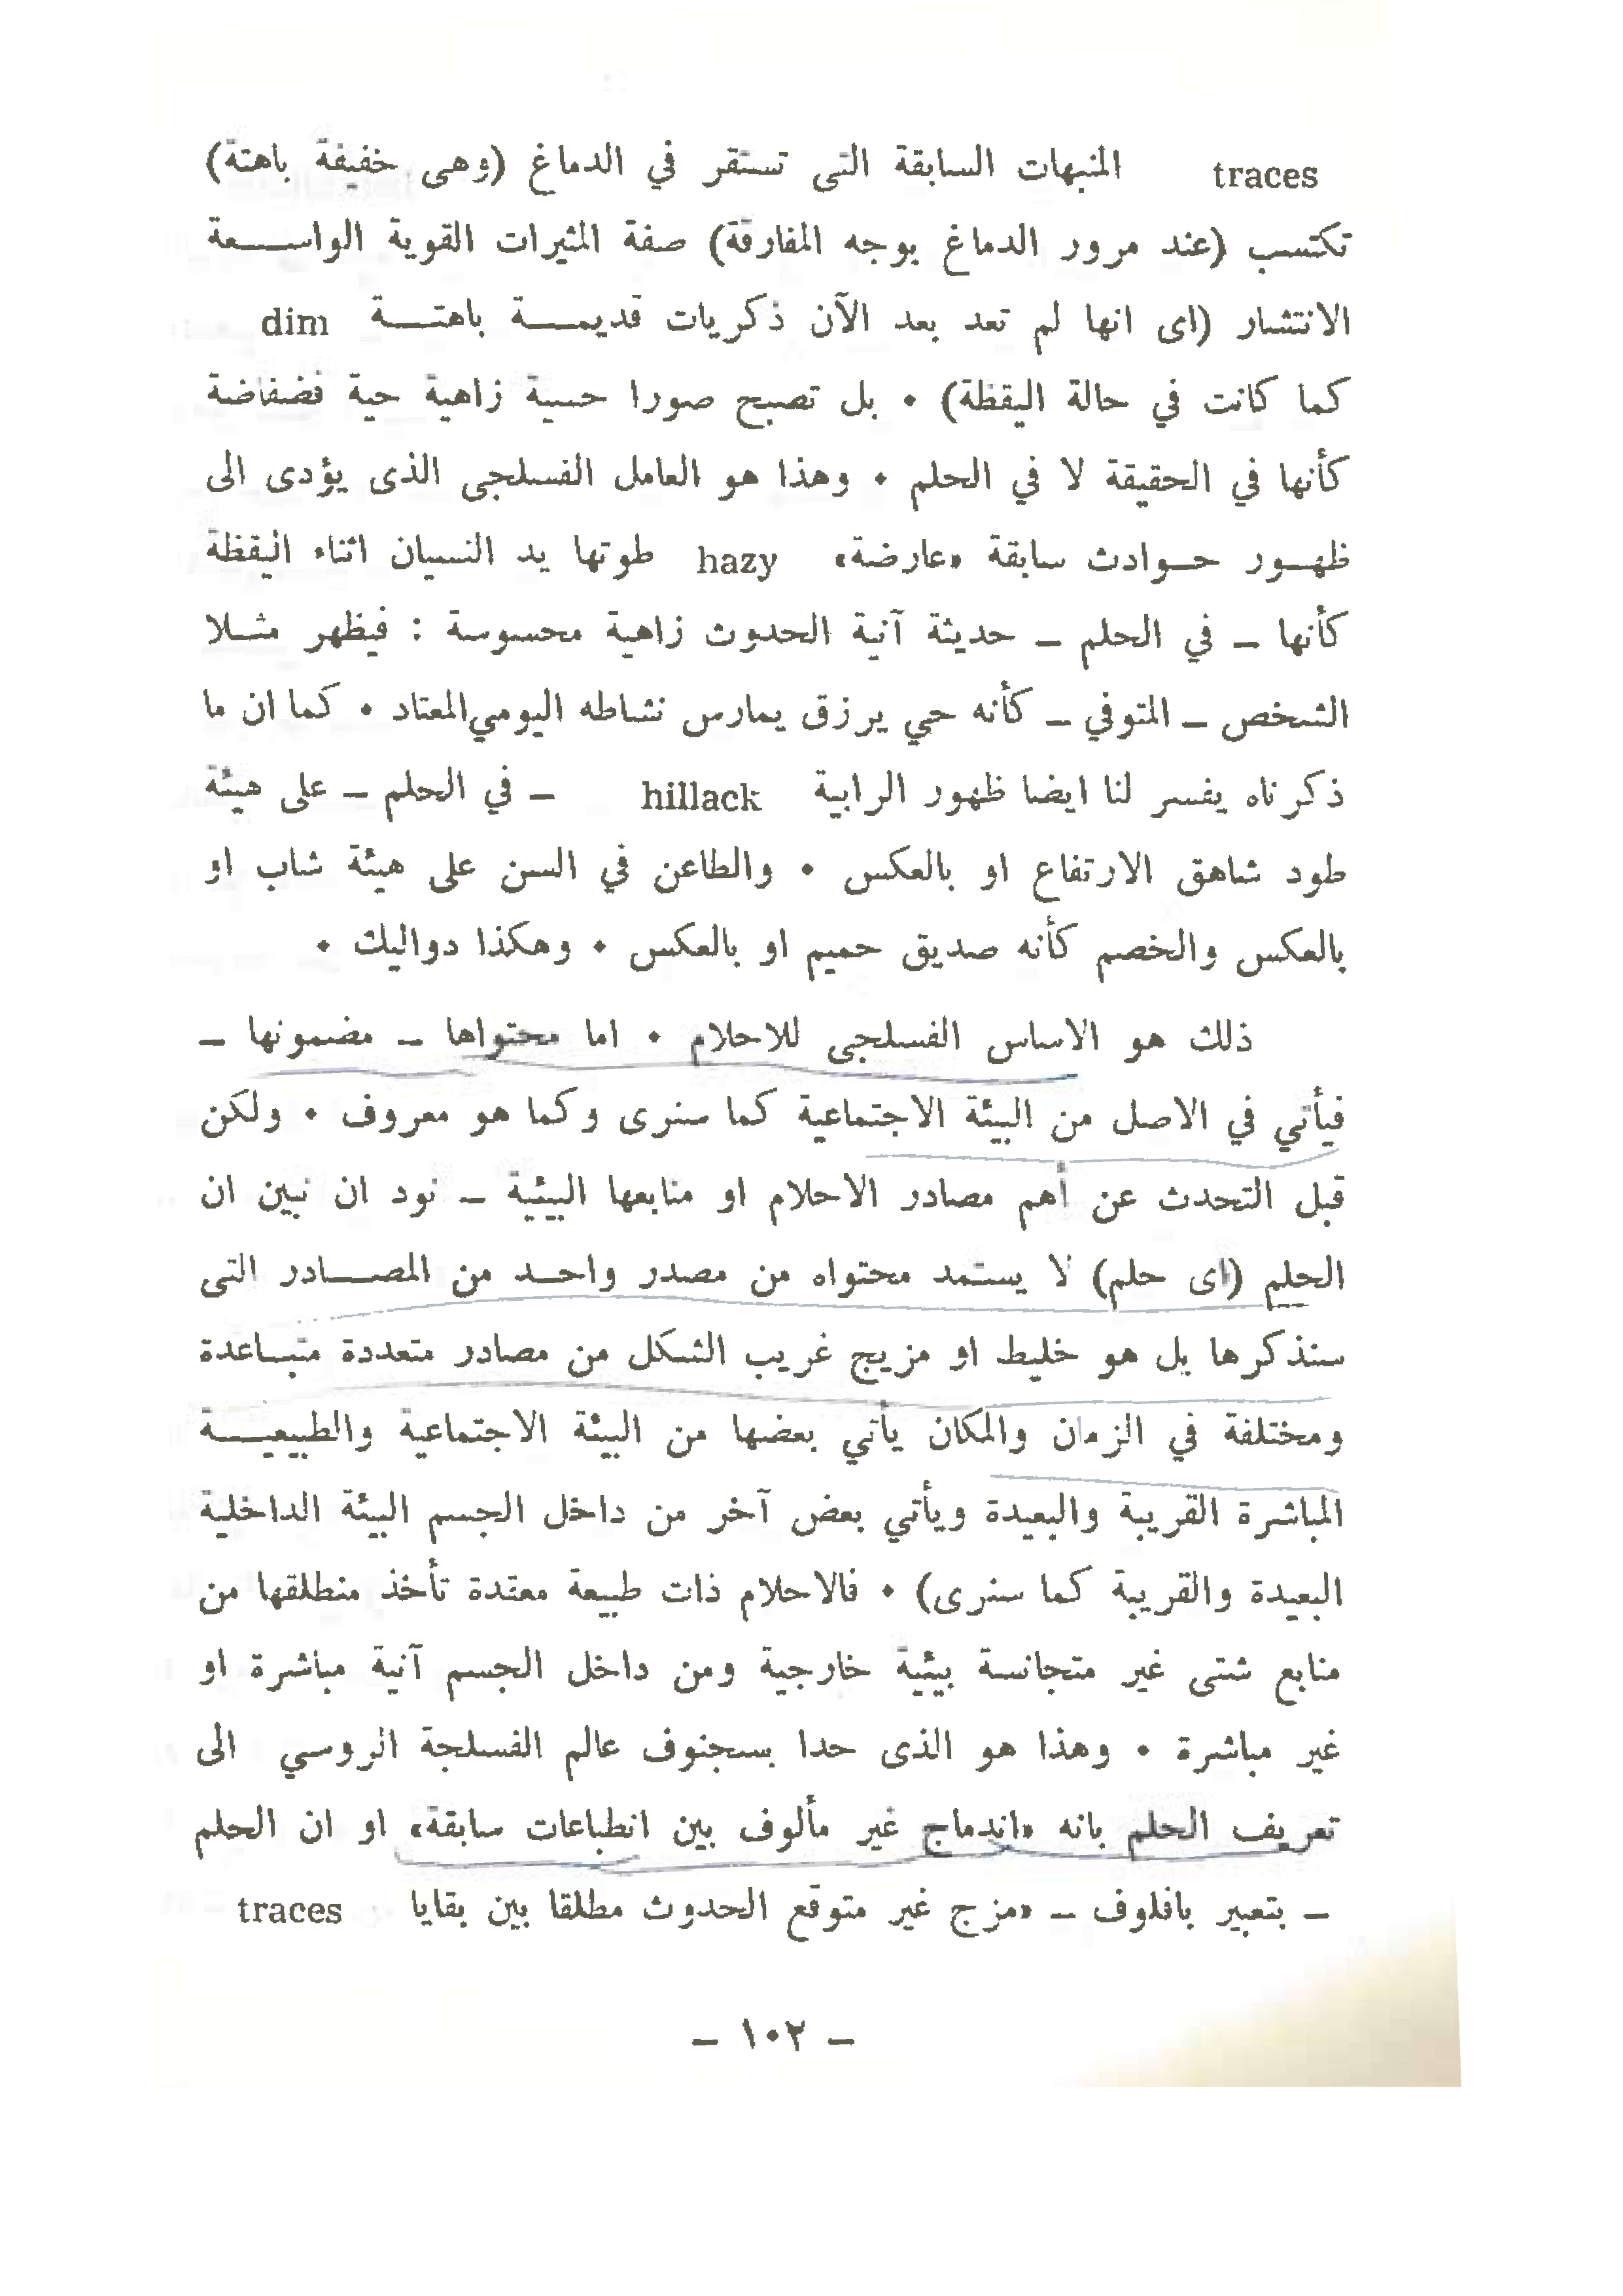 traces المنبهات السابقة التى تستقر في الدماغ (وهى خفيفة باهتة)
تكتسب (عند مرور الدماغ بوجه المفارقة) صفة المثيرات القوية الواسعة
الانتشار (اى انها لم تعد بعد الآن ذكريات قديمة باهتة dim
كما كانت في حالة اليقظة) • بل تصبح صورا حسية زاهية حية فضفاضة
كأنها في الحقيقة لا في الحلم • وهذا هو العامل الفسلجى الذى يؤدى الى
ظهور حوادث سابقة «عارضة» hazy طوتها يد النسيان اثناء اليقظة
كأنها – في الحلم – حديثة آنية الحدوث زاهية محسوسة : فيظهر مثلا
الشخص – المتوفي – كأنه حي يرزق يمارس نشاطه اليومي المعتاد • كما ان ما
ذكرناه يفسر لنا ايضا ظهور الرابية hillack – في الحلم – على هيئة
طود شاهق الارتفاع او بالعكس • والطاعن في السن على هيئة شاب او
بالعكس والخصم كأنه صديق حميم او بالعكس • وهكذا دواليك •
ذلك هو الاساس الفسلجى للاحلام • اما محتواها – مضمونها –
فيأتي في الاصل من البيئة الاجتماعية كما سنرى وكما هو معروف • ولكن
قبل التحدث عن أهم مصادر الاحلام او منابعها البيئية – نود ان نبين ان
الحلم (اى حلم) لا يستمد محتواه من مصدر واحد من المصادر التى
سنذكرها بل هو خليط او مزيج غريب الشكل من مصادر متعددة متباعدة
ومختلفة في الزمان والمكان يأتي بعضها من البيئة الاجتماعية والطبيعية
المباشرة القريبة والبعيدة ويأتي بعض آخر من داخل الجسم البيئة الداخلية
البعيدة والقريبة كما سنرى) • فالاحلام ذات طبيعة معتدة تأخذ منطلقها من
منابع شتى غير متجانسة بيئية خارجية ومن داخل الجسم آنية مباشرة او
غير مباشرة • وهذا هو الذى حدا بسجنوف عالم الفسلجة الروسي الى
تعريف الحلم بانه «اندماج غير مألوف بين انطباعات سابقة» او ان الحلم
– بتعبير بافلوف – «مزج غير متوقع الحدوث مطلقا بين بقايا traces
– ١٠٢ –